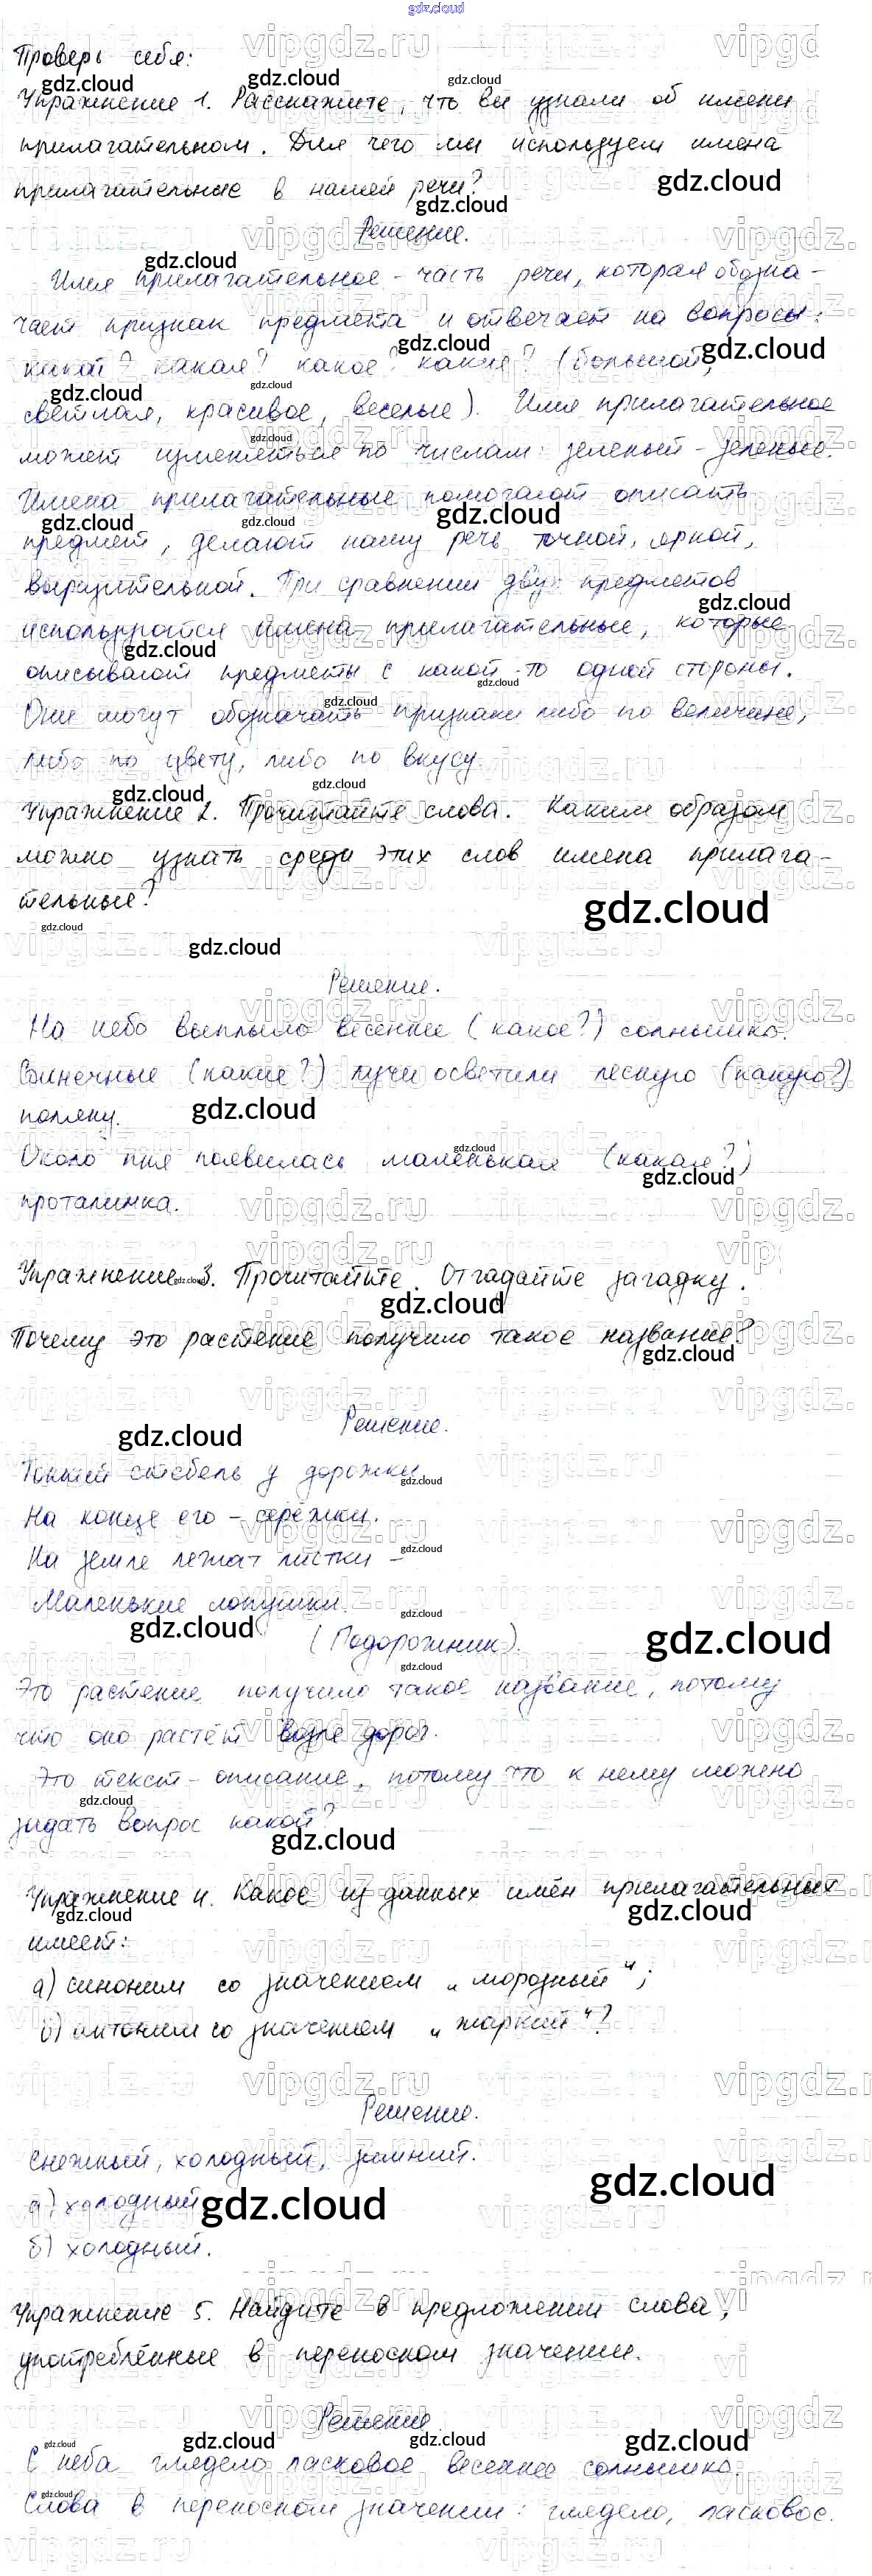 gdz.cloud
Проверь себя:
Упражнение 1. Расскажите, что вы узнали об имени
прилагательном. Для чего мы используем имена
прилагательные в нашей речи?
Решение.
Имя прилагательное - часть речи, которая обозна-
чает признак предмета и отвечает на вопросы:
какой? какая? какое? какие? (большой,
светлая, красивое, веселые). Имя прилагательное
может изменяться по числам: зеленый - зеленые.
Имена прилагательные помогают описать
предмет, делают нашу речь точной, яркой,
выразительной. При сравнении двух предметов
используются имена прилагательные, которые
описывают предметы с какой-то одной стороны.
Они могут обозначать признаки либо по величине,
либо по цвету, либо по вкусу.
Упражнение 2. Прочитайте слова. Каким образом
можно узнать среди этих слов имена прилага-
тельные?
Решение.
На небо выплыло весеннее (какое?) солнышко.
Солнечные (какие?) лучи осветили лесную (какую?)
поляну.
Около пня появилась маленькая (какая?)
проталинка.
Упражнение 3. Прочитайте. Отгадайте загадку.
Почему это растение получило такое название?
Решение.
Тонкий стебель у дорожки
На конце его - серёжки.
На земле лежат листки -
Маленькие лопушки.
(Подорожник).
Это растение получило такое название, потому
что оно растёт возле дорог.
Это текст - описание, потому что к нему можно
задать вопрос какой?
Упражнение 4. Какое из данных имён прилагательных
имеет:
а) синоним со значением „морозный";
б) антоним со значением „жаркий"?
Решение.
Снежный, холодный, зимний.
а) холодный
б) холодный.
Упражнение 5. Найдите в предложении слова,
употреблённые в переносном значении.
Решение
С неба глядело ласковое весеннее солнышко.
Слова в переносном значении: глядело, ласковое.